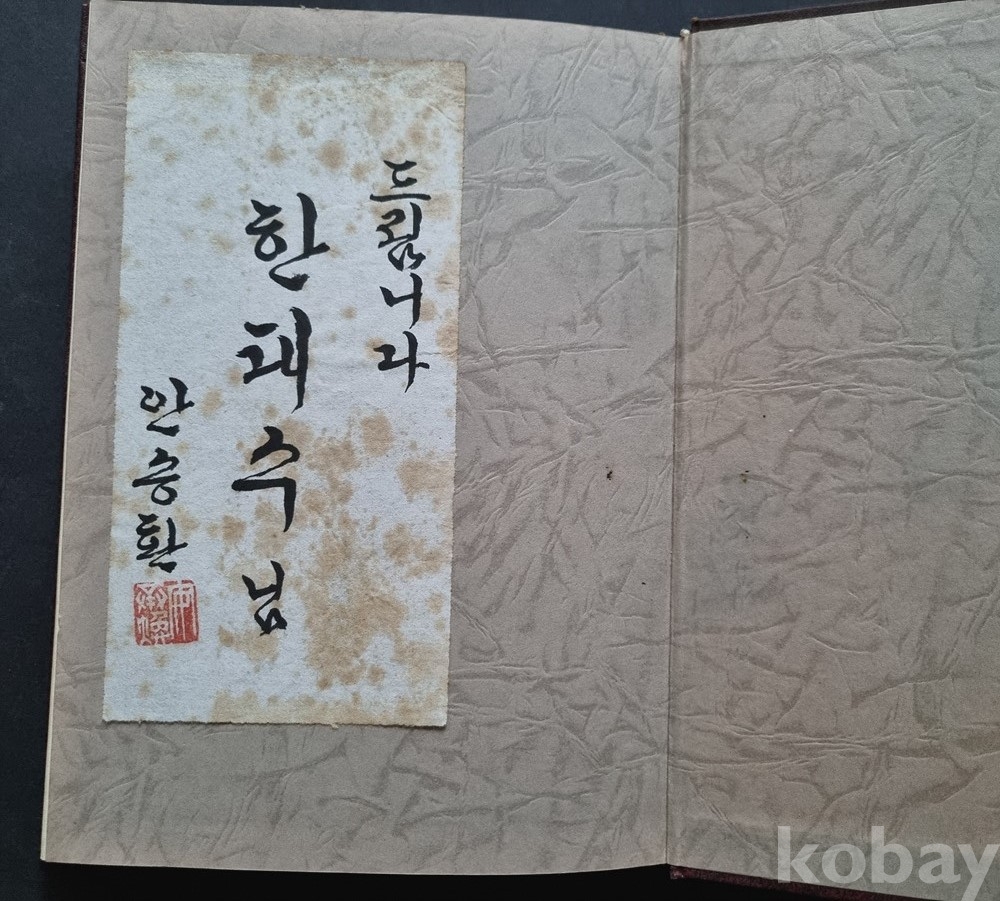 드립니다
한태수님
안승환
kobay